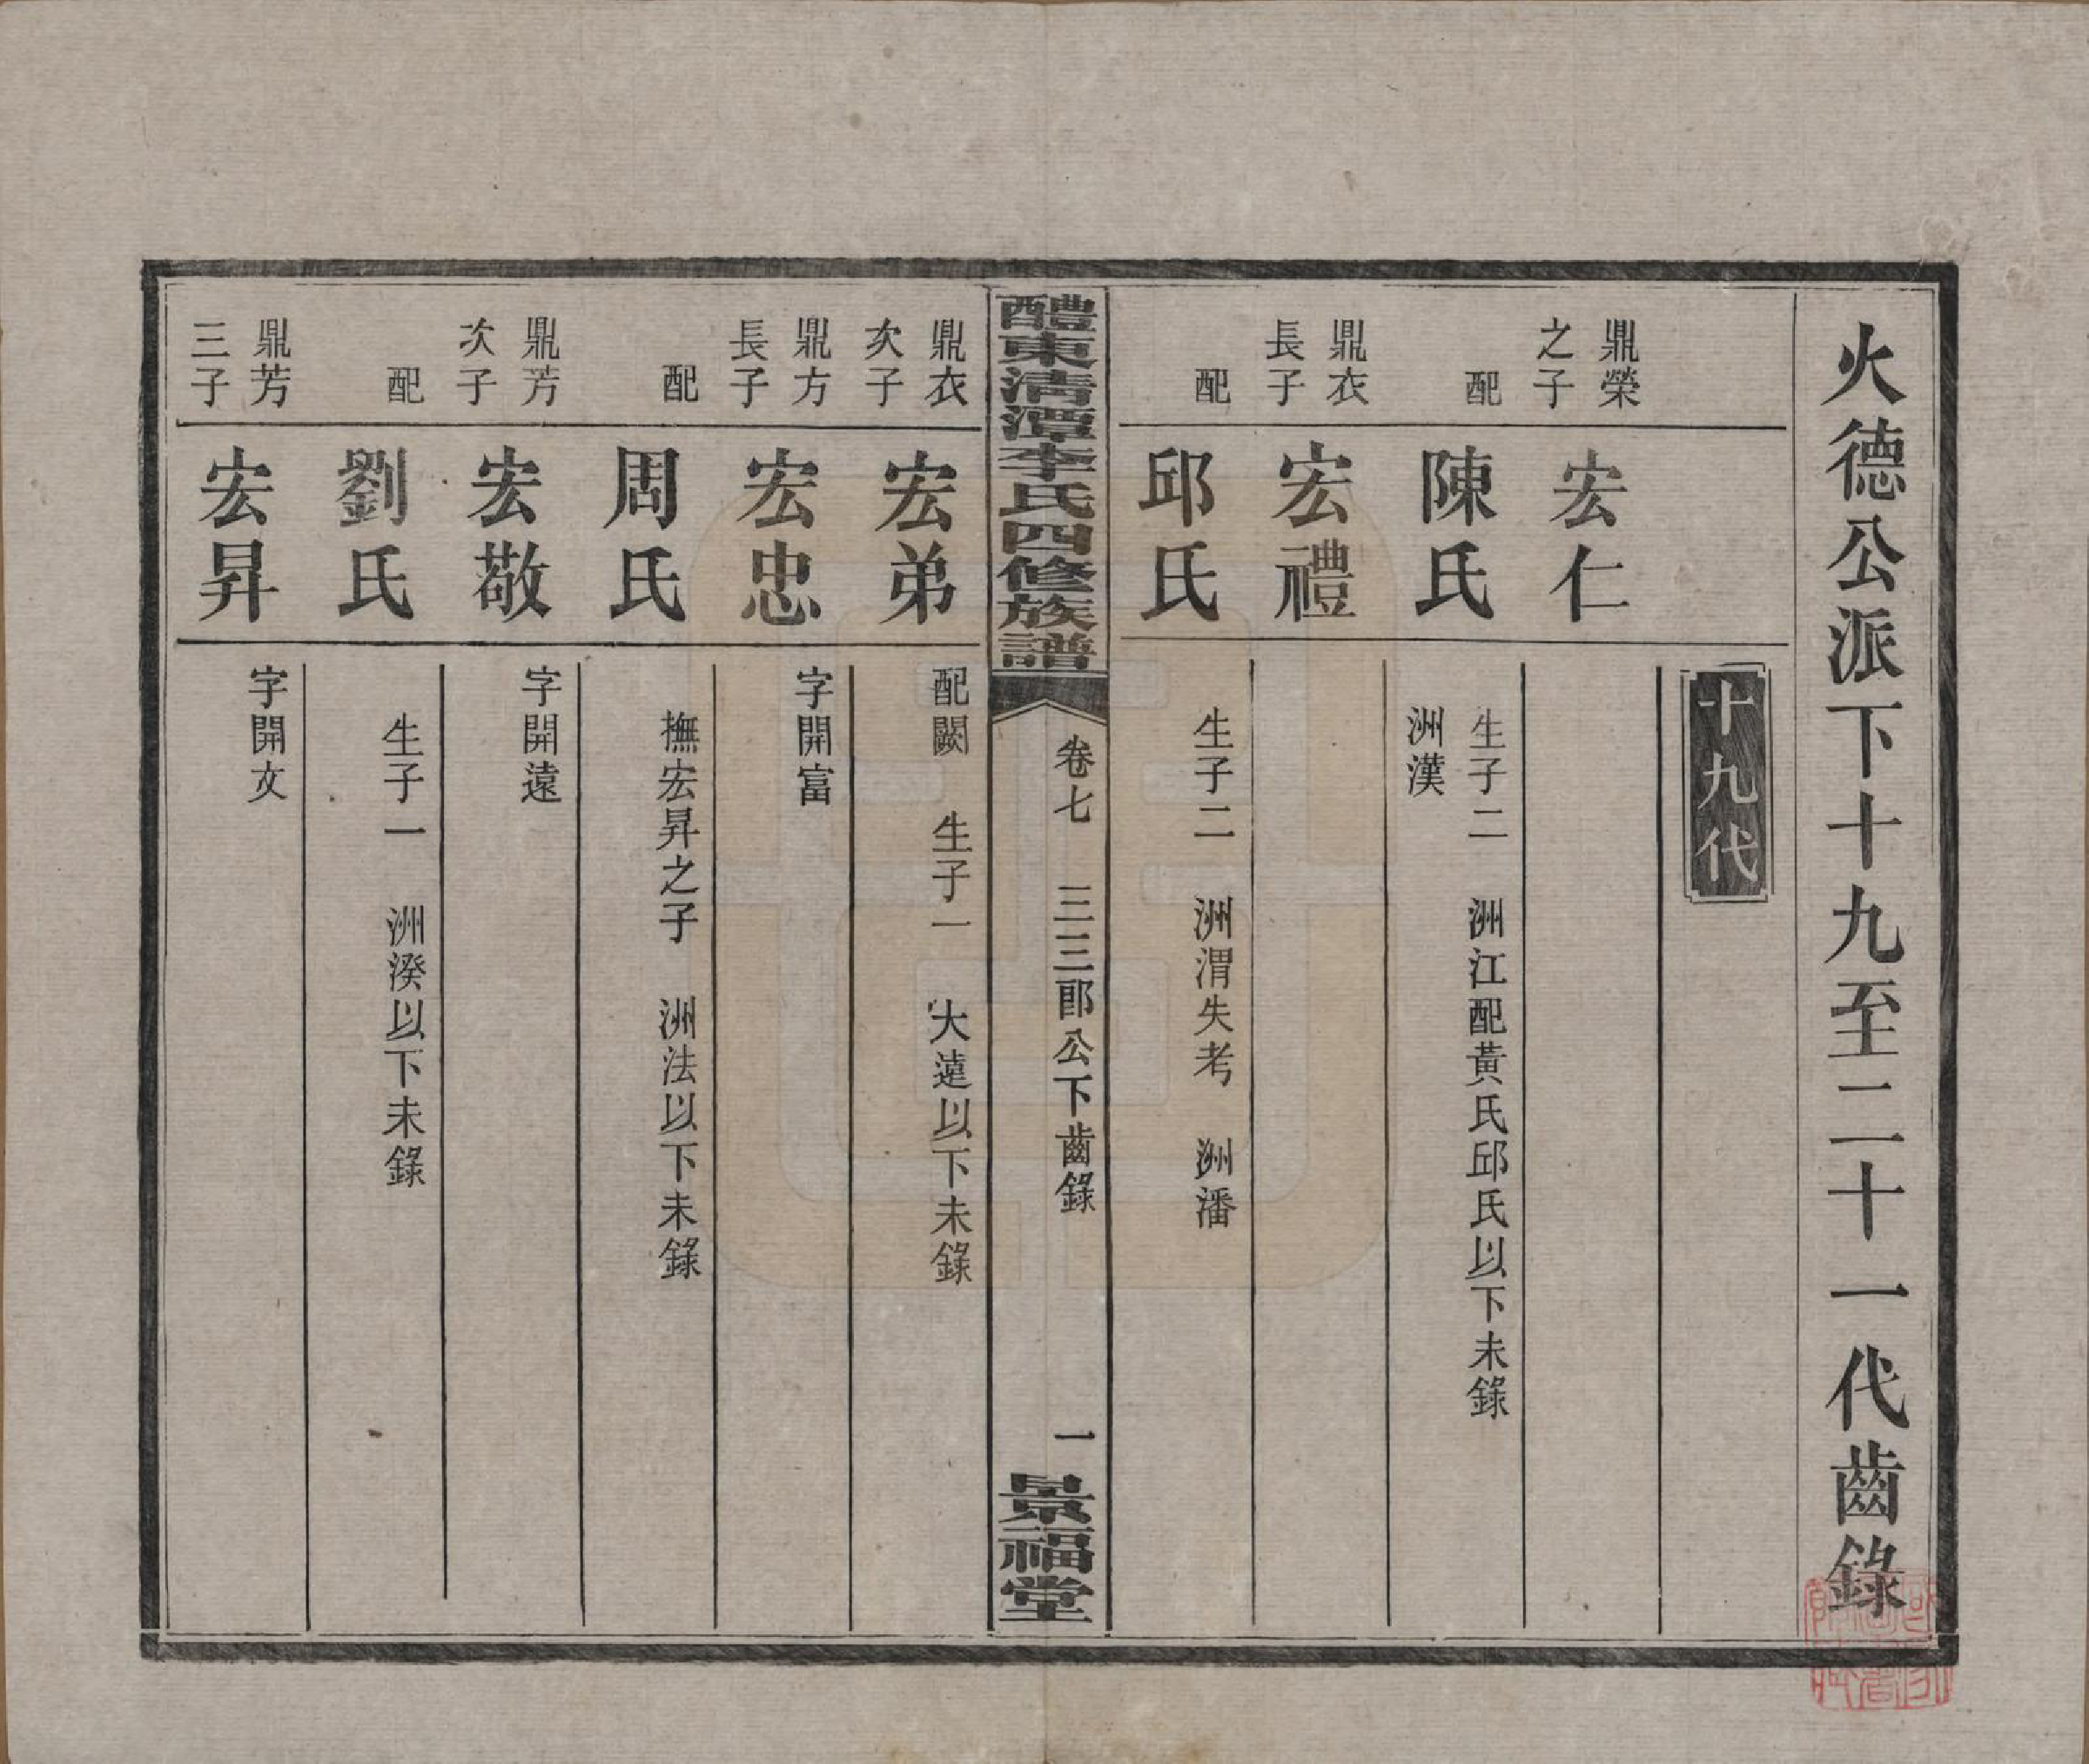 火德公派下十九至二十一代齒錄
十九代
鼎榮
之子
宏仁
配
陳氏
生子二　洲江配黃氏邱氏以下未錄
洲漢
鼎衣
長子
宏禮
配
邱氏
生子二　洲渭失考　洲潘
醴東清潭李氏四修族譜
卷七　三三郎公下齒錄
一
景福堂
鼎衣
次子
宏弟
配闕　生子一　大遠以下未錄
鼎方
長子
宏忠
字開富
配
周氏
撫宏昇之子　洲法以下未錄
鼎芳
次子
宏敬
字開遠
配
劉氏
生子一　洲湀以下未錄
鼎芳
三子
宏昇
字開文